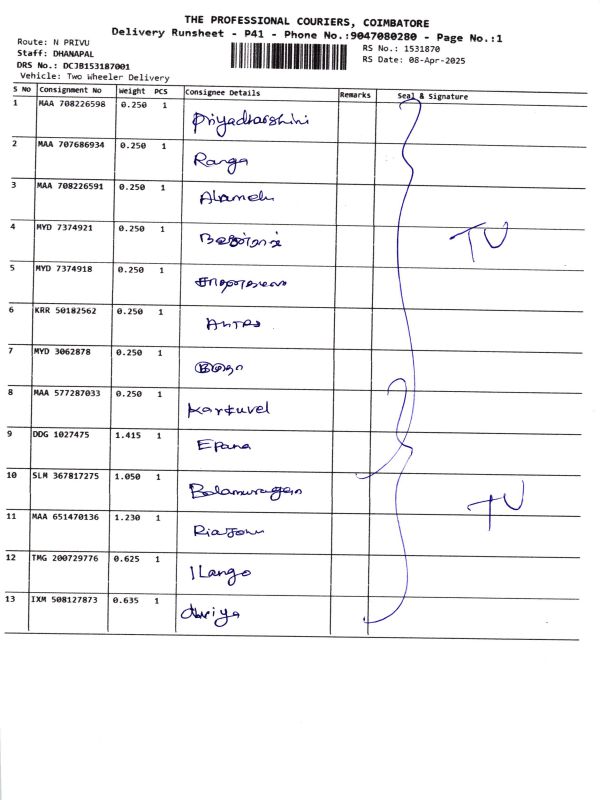 THE PROFESSIONAL COURIERS, COIMBATORE
Delivery Runsheet - P41 - Phone No.:9047080280 - Page No.:1
Route: N PRIVU
Staff: DHANAPAL
DRS No.: DCJB153187001
Vehicle: Two Wheeler Delivery
RS No.: 1531870
RS Date: 08-Apr-2025
S No Consignment No Weight PCS Consignee Details Remarks Seal & Signature
1 MAA 708226598 0.250 1 Priyadharshini
2 MAA 707686934 0.250 1 Ranga
3 MAA 708226591 0.250 1 Alamelu
4 MYD 7374921 0.250 1
TV
5 MYD 7374918 0.250 1
6 KRR 50182562 0.250 1
7 MYD 3062878 0.250 1
8 MAA 577287033 0.250 1 Karkuvel
9 DDG 1027475 1.415 1 Epana
10 SLM 367817275 1.050 1 Balamurugan
TV
11 MAA 651470136 1.230 1 Ria John
12 TMG 200729776 0.625 1 ILango
13 IXM 508127873 0.635 1